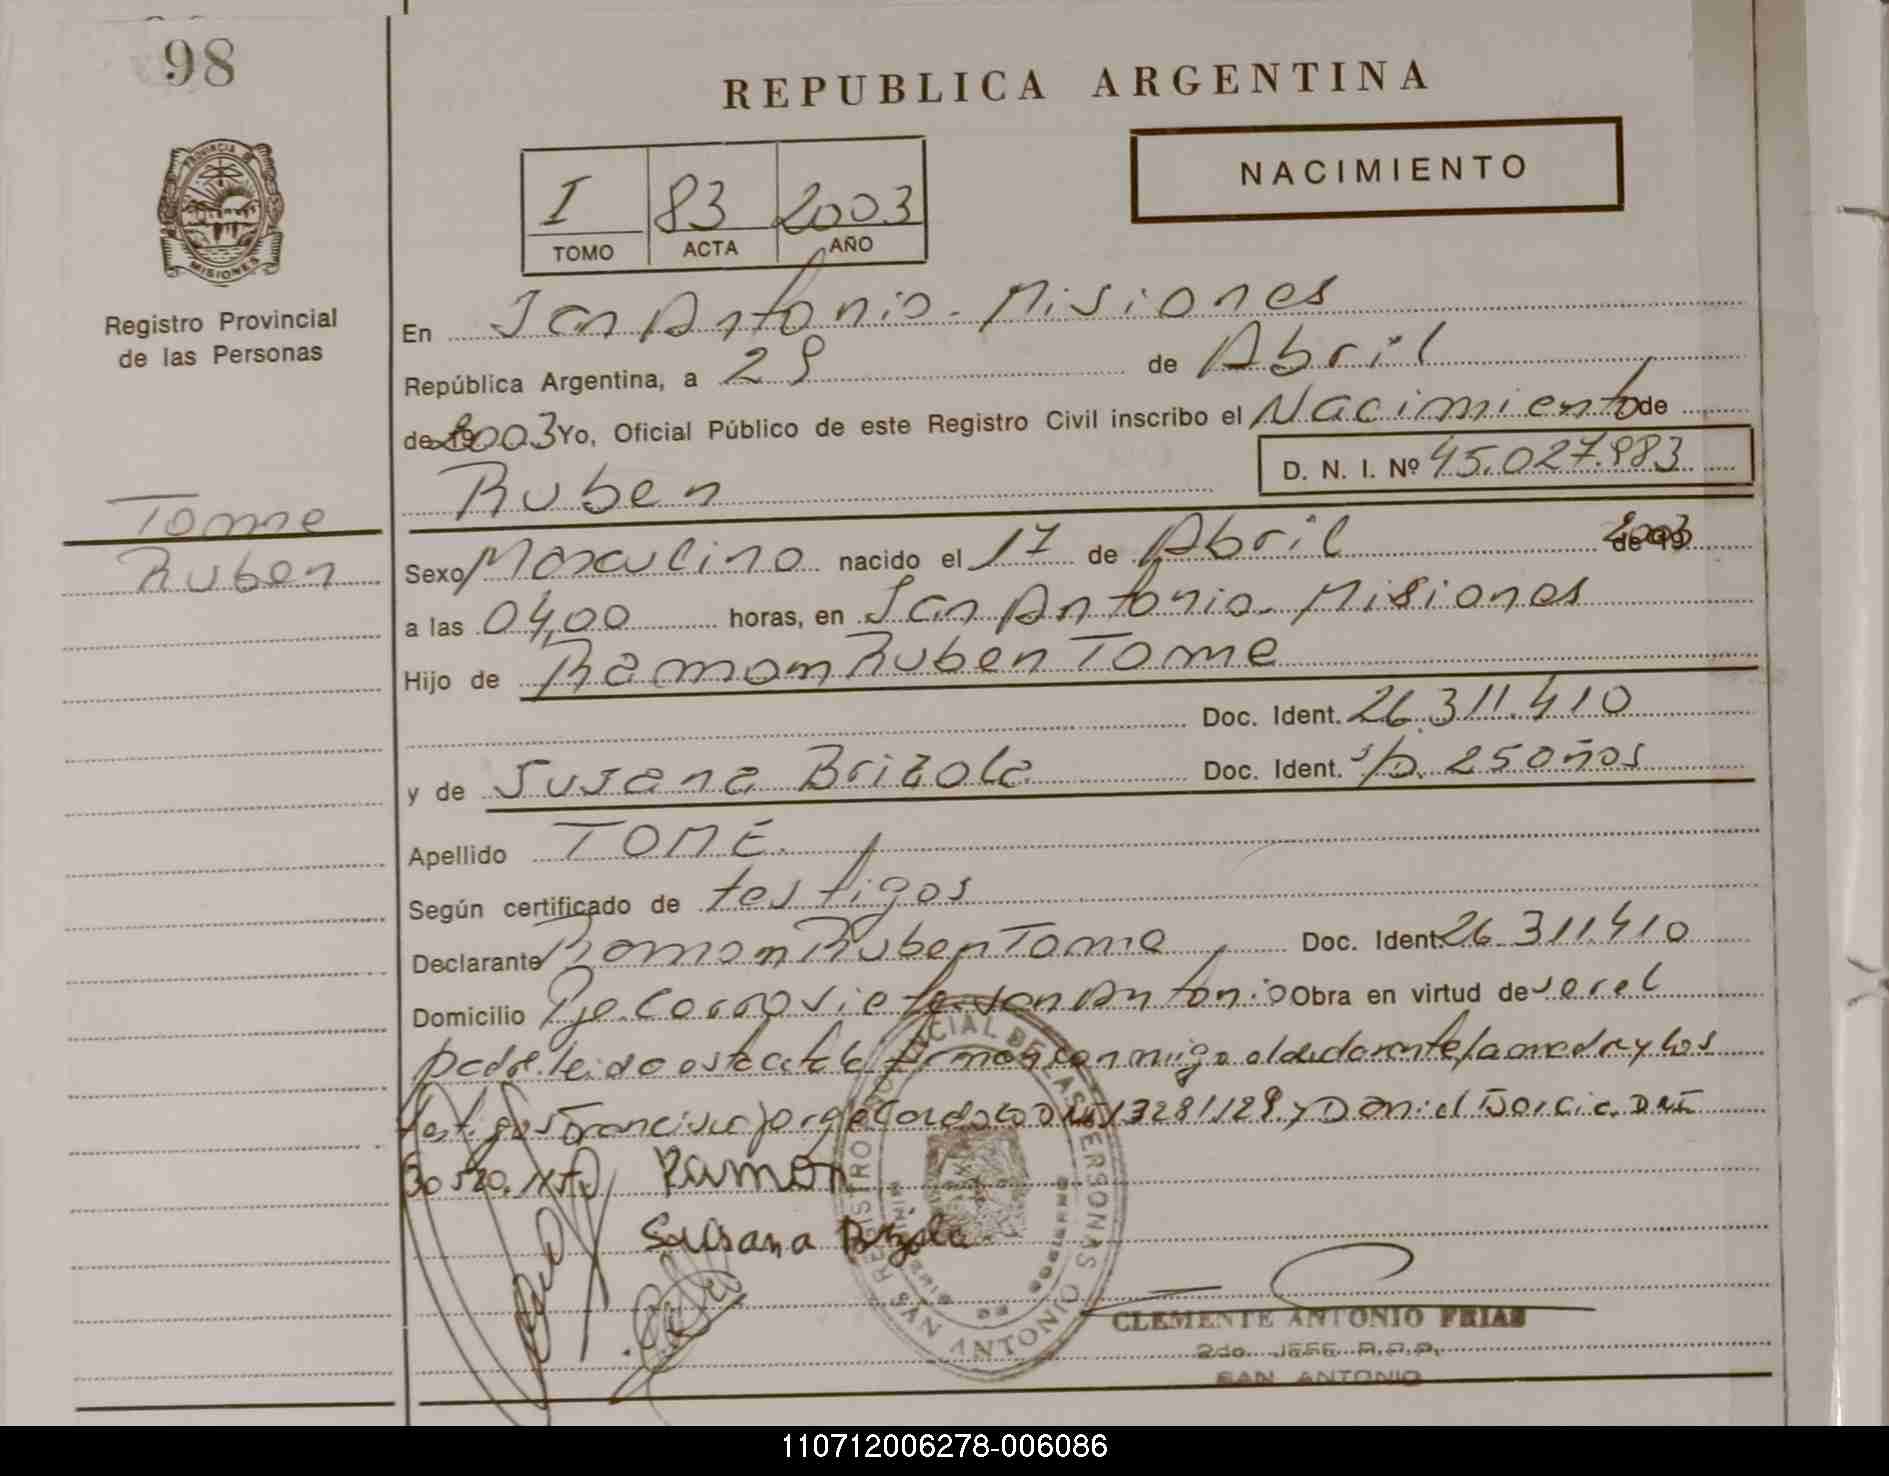 98
REPUBLICA ARGENTINA
NACIMIENTO
I 83 2003
TOMO ACTA AÑO
PROVINCIA DE
MISIONES
Registro Provincial
de las Personas
En San Antonio - Misiones
República Argentina, a 29 de Abril
de 2003 Yo, Oficial Público de este Registro Civil inscribo el Nacimiento de
D. N. I. Nº 45.027.983
Ruben
Tome
Ruben
Sexo Masculino nacido el 17 de Abril de 2003
a las 04,00 horas, en San Antonio - Misiones
Hijo de Ramon Ruben Tome
Doc. Ident. 26.311.410
y de Susana Brizola Doc. Ident. s/D. 25 años
Apellido TOME.
Según certificado de testigos
Declarante Ramon Ruben Tome Doc. Ident. 26.311.410
Domicilio Pje. Corrovieta San Antonio Obra en virtud de ser el
padre. leido esta acta la firman conmigo el declarante la madre y los
testigos Francisco Jorge Cardozo DNI 13281129 y Daniel Garcia DNI
Ramon
Susana Brizola
REGISTRO PROVINCIAL DE LAS PERSONAS
SAN ANTONIO
CLEMENTE ANTONIO FRIAS
2do. JEFE R.P.P.
SAN ANTONIO
110712006278-006086